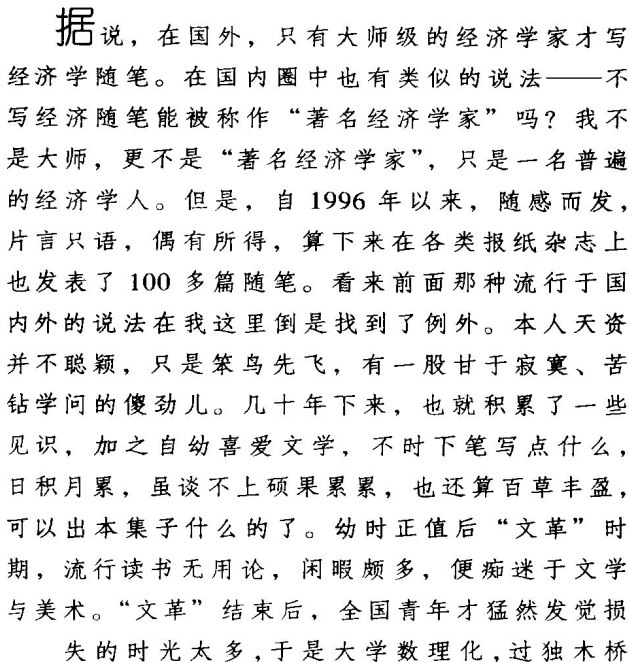 据说，在国外，只有大师级的经济学家才写
经济学随笔。在国内圈中也有类似的说法——不
写经济随笔能被称作“著名经济学家”吗？我不
是大师，更不是“著名经济学家”，只是一名普遍
的经济学人。但是，自 1996 年以来，随感而发，
片言只语，偶有所得，算下来在各类报纸杂志上
也发表了 100 多篇随笔。看来前面那种流行于国
内外的说法在我这里倒是找到了例外。本人天资
并不聪颖，只是笨鸟先飞，有一股甘于寂寞、苦
钻学问的傻劲儿。几十年下来，也就积累了一些
见识，加之自幼喜爱文学，不时下笔写点什么，
日积月累，虽谈不上硕果累累，也还算百草丰盈，
可以出本集子什么的了。幼时正值后“文革”时
期，流行读书无用论，闲暇颇多，便痴迷于文学
与美术。“文革”结束后，全国青年才猛然发觉损
失的时光太多,于是大学数理化,过独木桥